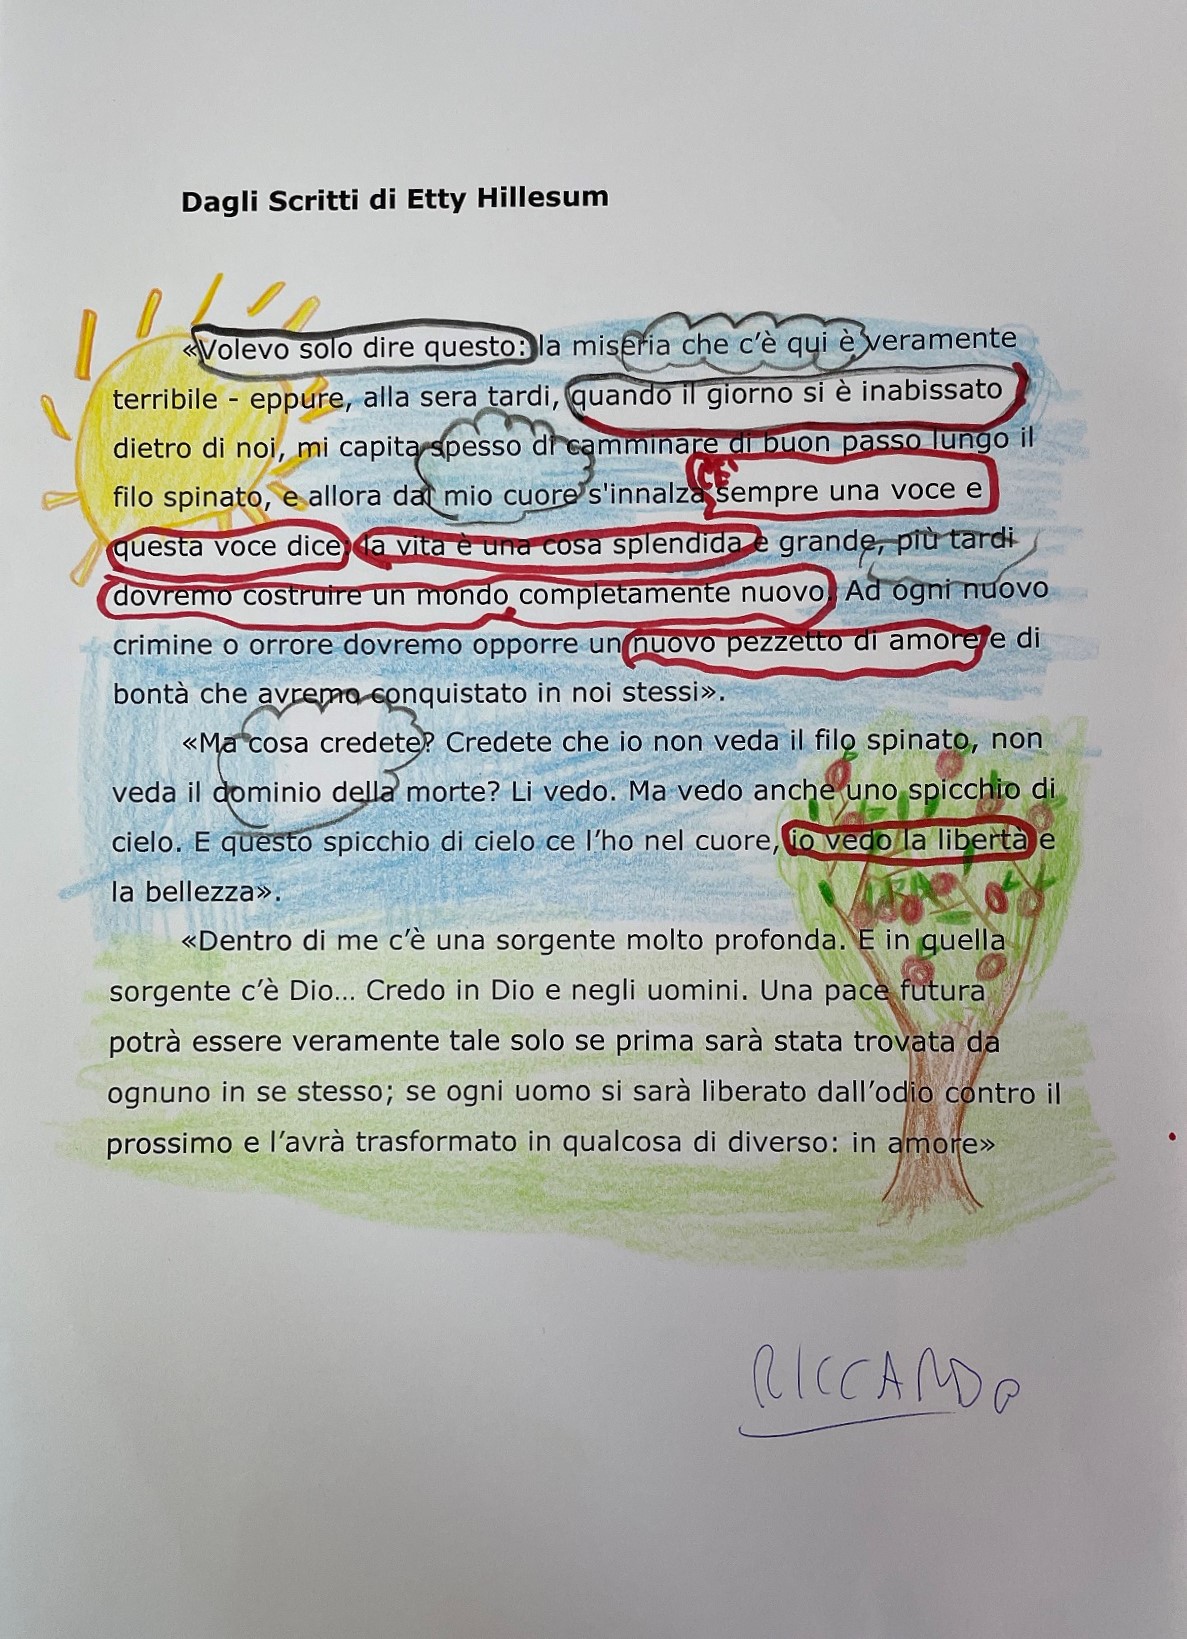 Dagli Scritti di Etty Hillesum
«Volevo solo dire questo: la miseria che c’è qui è veramente
terribile - eppure, alla sera tardi, quando il giorno si è inabissato
dietro di noi, mi capita spesso di camminare di buon passo lungo il
C'È
filo spinato, e allora dal mio cuore s'innalza sempre una voce e
questa voce dice: la vita è una cosa splendida e grande, più tardi
dovremo costruire un mondo completamente nuovo. Ad ogni nuovo
crimine o orrore dovremo opporre un nuovo pezzetto di amore e di
bontà che avremo conquistato in noi stessi».
«Ma cosa credete? Credete che io non veda il filo spinato, non
veda il dominio della morte? Li vedo. Ma vedo anche uno spicchio di
cielo. E questo spicchio di cielo ce l’ho nel cuore, io vedo la libertà e
la bellezza».
«Dentro di me c’è una sorgente molto profonda. E in quella
sorgente c’è Dio... Credo in Dio e negli uomini. Una pace futura
potrà essere veramente tale solo se prima sarà stata trovata da
ognuno in se stesso; se ogni uomo si sarà liberato dall’odio contro il
prossimo e l’avrà trasformato in qualcosa di diverso: in amore»
RICCARDO